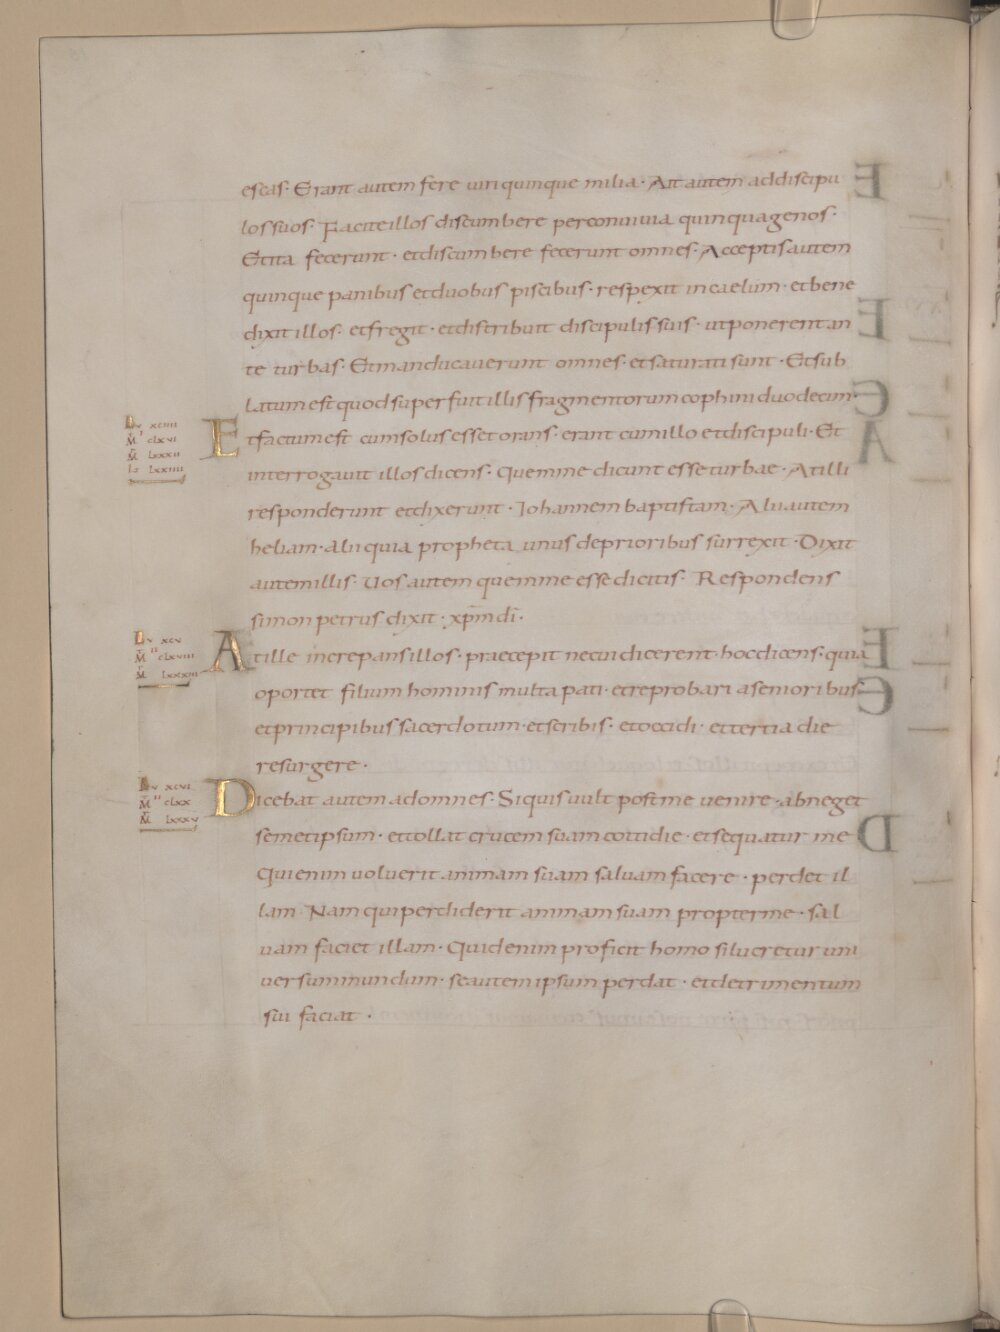 escas· Erant autem fere uiri quinque milia· Ait autem addiscipu
los suos· Faciteillos discumbere perconuiuia quinquagenos·
Etita fecerunt· etdiscumbere fecerunt omnes· Acceptisautem
quinque panibus etduobus piscibus· respexit incaelum· etbene
dixit illos· etfregit· etdistribuit discipulissuis· utponerentan
te turbas· Etmanducauerunt omnes· etsaturati sunt· Etsub
latum estquodsuperfuit illis fragmentorum cophini duodecim·
Lu xciiii
M clxvi
M lxxxii
Io lxxiiii
Etfactumest cumsolus esset orans· erant cumillo etdiscipuli· Et
interrogauit illos dicens· Quemme dicunt esse turbae· Atilli
responderunt etdixerunt· Iohannem baptistam· Aliiautem
heliam· alii quia propheta unus deprioribus surrexit· Dixit
autemillis· Uos autem quemme esse dicitis· Respondens
simon petrus dixit· xpm di·
Lu xcv
M clxviii
M lxxxiii
Atille increpansillos· praecepit necui dicerent· hocdicens· quia
oportet filium hominis multa pati· etreprobari asenioribus
etprincipibus sacerdotum· etscribis· etoccidi· ettertia die
resurgere·
Lu xcvi
M clxx
M lxxxv
Dicebat autem adomnes· Siquisuult postme uenire· abneget
semetipsum· ettollat crucem suam cottidie· etsequatur me
Quienim uoluerit animam suam saluam facere· perdet il
lam· Nam quiperdiderit animam suam propterme· sal
uam faciet illam· Quidenim proficit homo silucretur uni
uersummundum· seautem ipsum perdat· etdetrimentum
sui faciat·